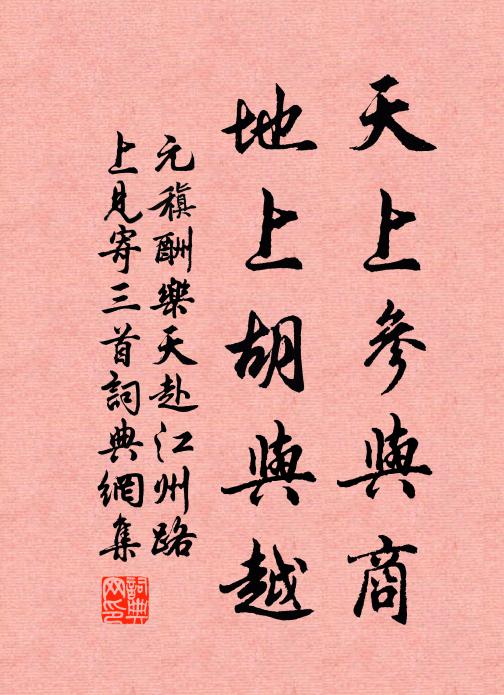 天上參與商
地上胡與越
元稹酬樂天赴江州路
上見寄三首詞典網集
詞典
网印